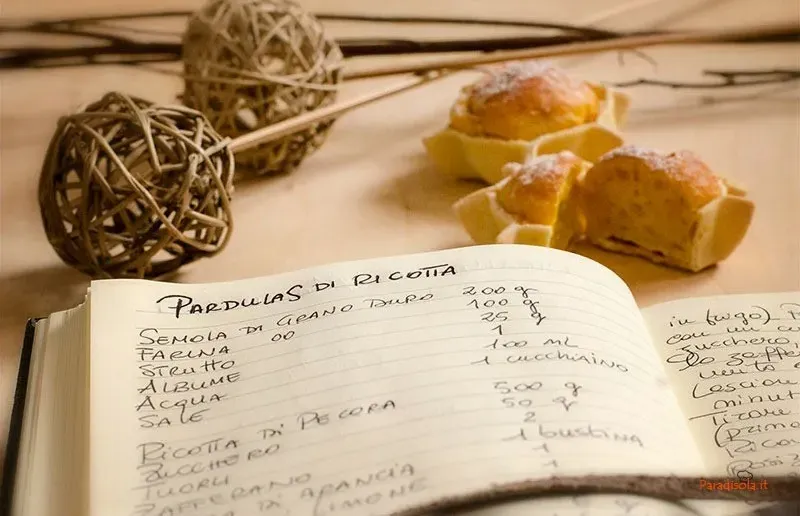 PARDULAS DI RICOTTA
SEMOLA DI GRANO DURO 200 g
FARINA 00 100 g
STRUTTO 25 g
ALBUME 1
ACQUA 100 ML
SALE 1 CUCCHIAINO
RICOTTA DI PECORA 500 g
ZUCCHERO 50 g
TUORLI 2
ZAFFERANO 1 bustina
DI ARANCIA 1
LIMONE 1
con un
zucchero,
lo zaffe
minut
Tirare
(prima
Ricot
Paradisola.it